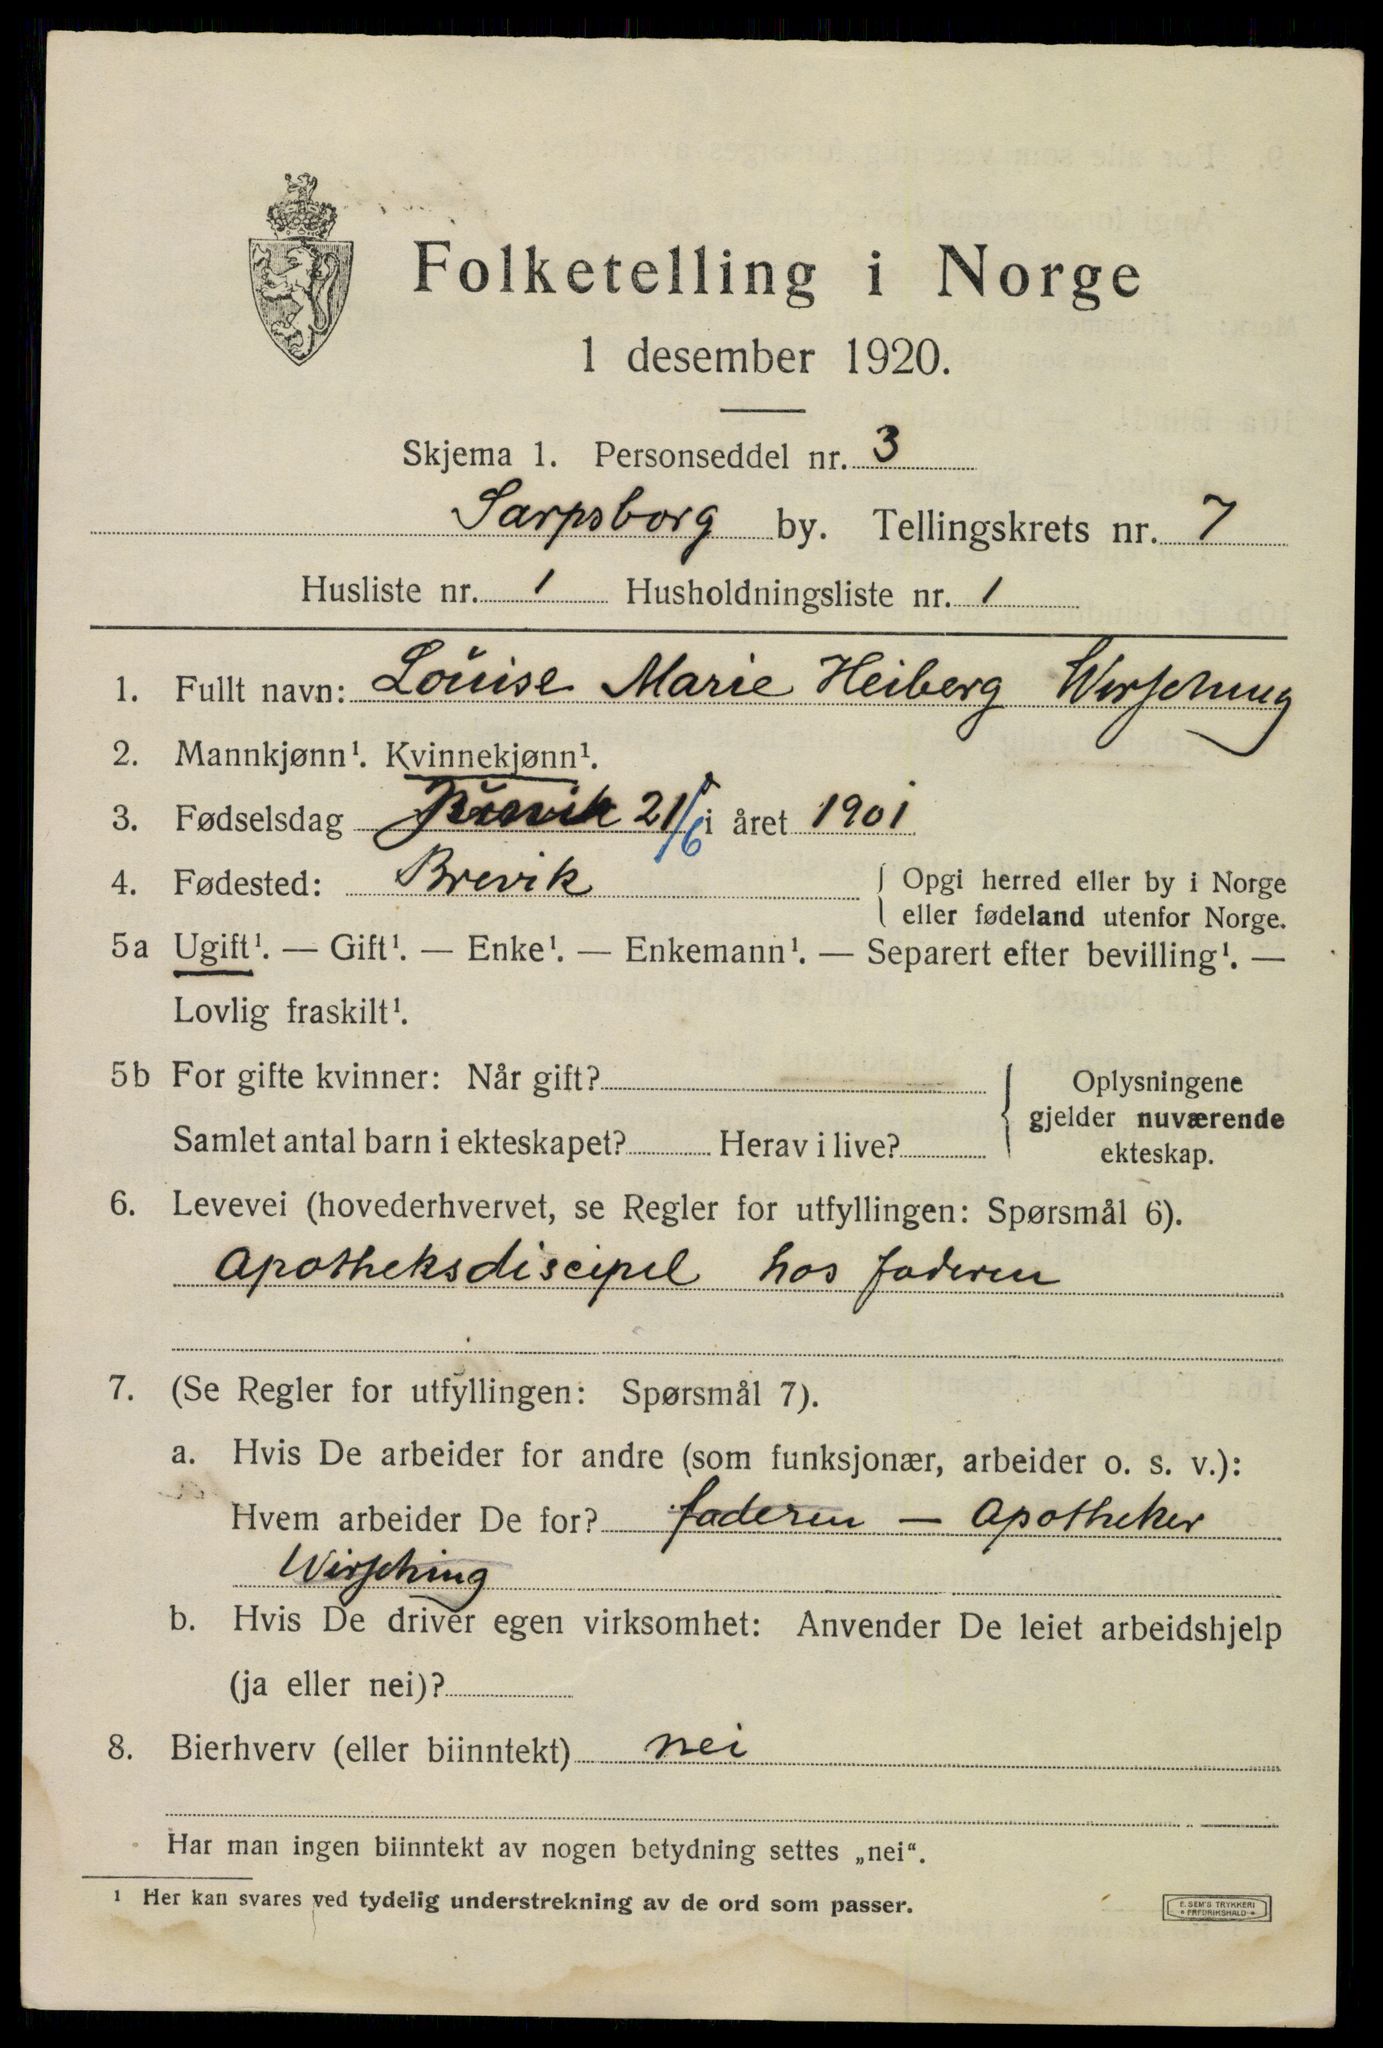 Folketelling i Norge
1 desember 1920.
Skjema 1. Personseddel nr. 3
Sarpsborg by. Tellingskrets nr. 7
Husliste nr. 1 Husholdningsliste nr. 1
1. Fullt navn: Louise Marie Heiberg Wirsching
2. Mannkjønn¹. Kvinnekjønn¹.
3. Fødselsdag 21/6 i året 1901
4. Fødested: Brevik { Opgi herred eller by i Norge
eller fødeland utenfor Norge.
5a Ugift¹. — Gift¹. — Enke¹. — Enkemann¹. — Separert efter bevilling¹. —
Lovlig fraskilt¹.
5b For gifte kvinner: Når gift? { Oplysningene
gjelder nuværende
Samlet antal barn i ekteskapet? Herav i live?
ekteskap.
6. Levevei (hovederhvervet, se Regler for utfyllingen: Spørsmål 6).
Apotheksdiscipel hos faderen
7. (Se Regler for utfyllingen: Spørsmål 7).
a. Hvis De arbeider for andre (som funksjonær, arbeider o. s. v.):
Hvem arbeider De for? faderen — Apotheker
Wirsching
b. Hvis De driver egen virksomhet: Anvender De leiet arbeidshjelp
(ja eller nei)?
8. Bierhverv (eller biinntekt) nei
Har man ingen biinntekt av nogen betydning settes „nei“.
¹ Her kan svares ved tydelig understrekning av de ord som passer.
E. SEM'S TRYKKERI
FREDRIKSHALD